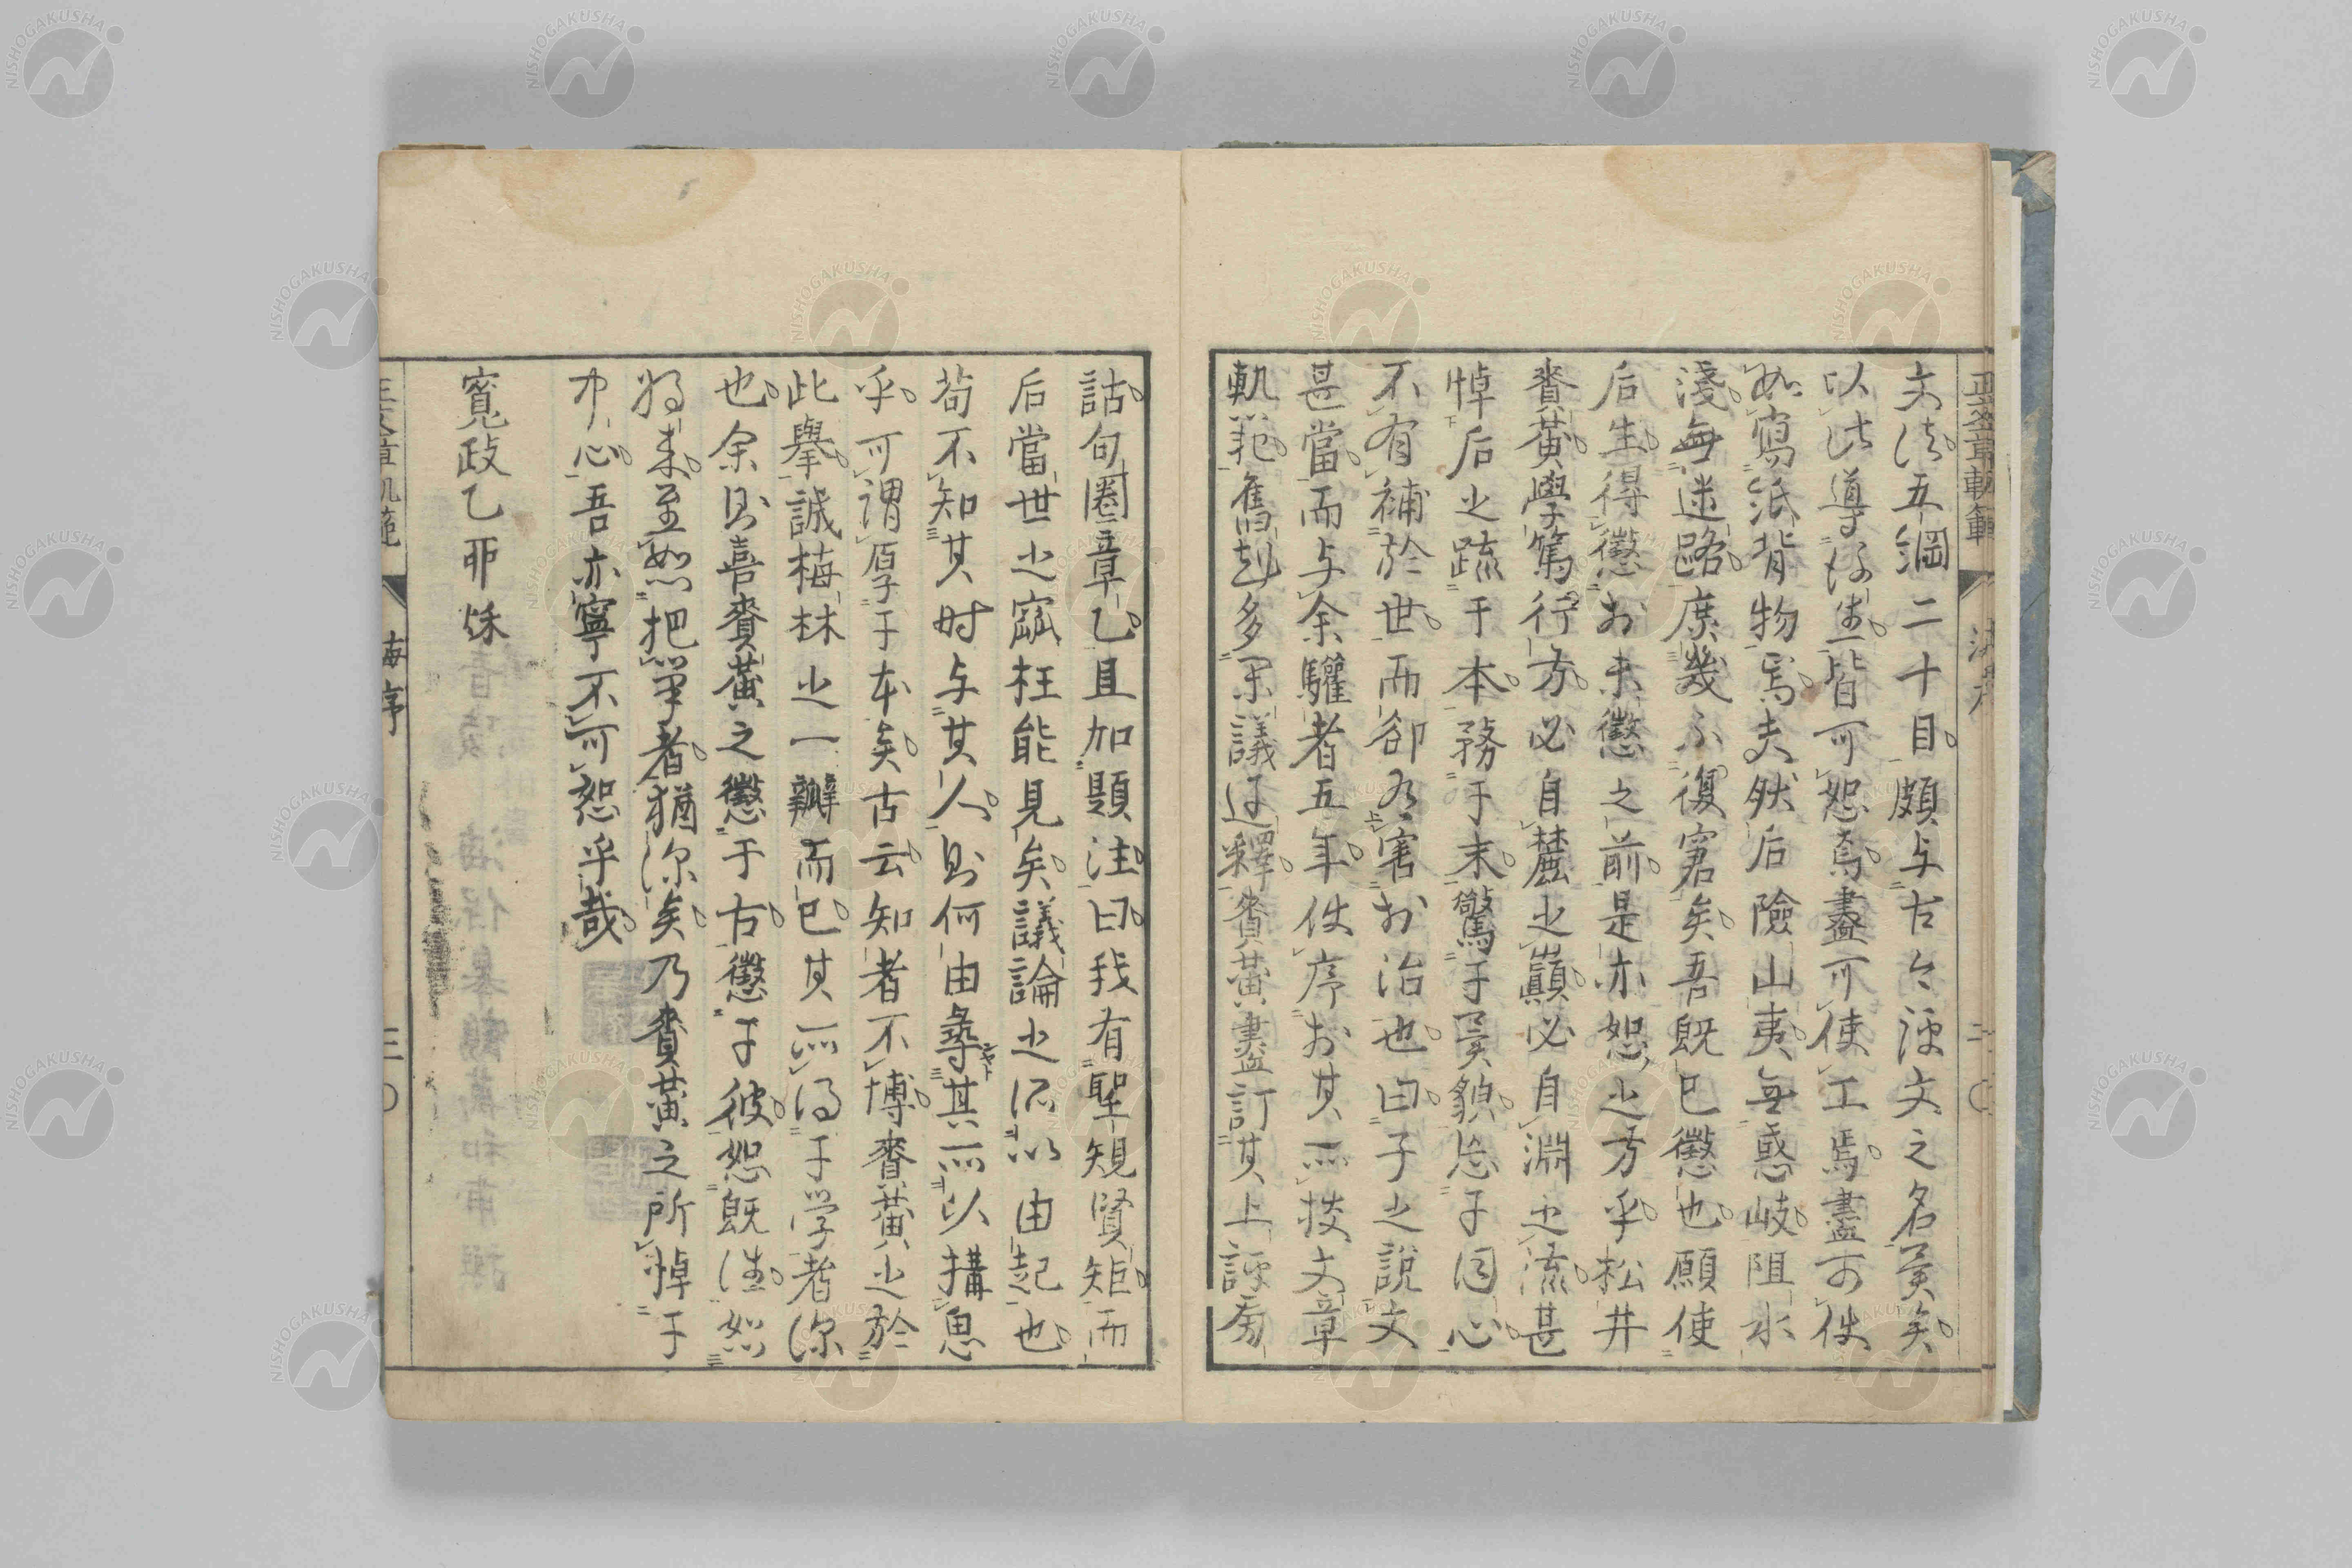 正文章軌範
文法五綱二十目頗与古今評文之名異矣
以此導後進皆可恕焉盡可使工焉盡可使
如寫紙背物焉夫然后險山夷無惑岐阻水
淺無迷路庶幾不復窘矣吾既已懲也願使
后生得懲於未懲之前是亦恕之方乎松井
賚黃學篤行方必自麓之巔必自淵之流甚
悼后之疏于本務于末驚于異貌忽于同心
不有補於世而卻有害於治也曰子之說文
甚當而与余驩者五年使序於其所校文章
軌範舊刻多累議迂釋賚黃盡訂其上評旁
詁句圈章乙且加題注曰我有聖規賢矩而
后當世之窳枉能見矣議論之所以由起也
苟不知其时与其人則何由尋其所以搆思
乎可謂厚于本矣古云知者不博賚黃之於
此擧誠梅林之一瓣而已其所得于学者深
也余則喜賚黃之懲于古懲于彼恕既往如
將来至如把筆者猶深矣乃賚黃之所悼于
中心吾亦寧不可恕乎哉
寬政乙卯秋
海序
三
NISHOGAKUSHA